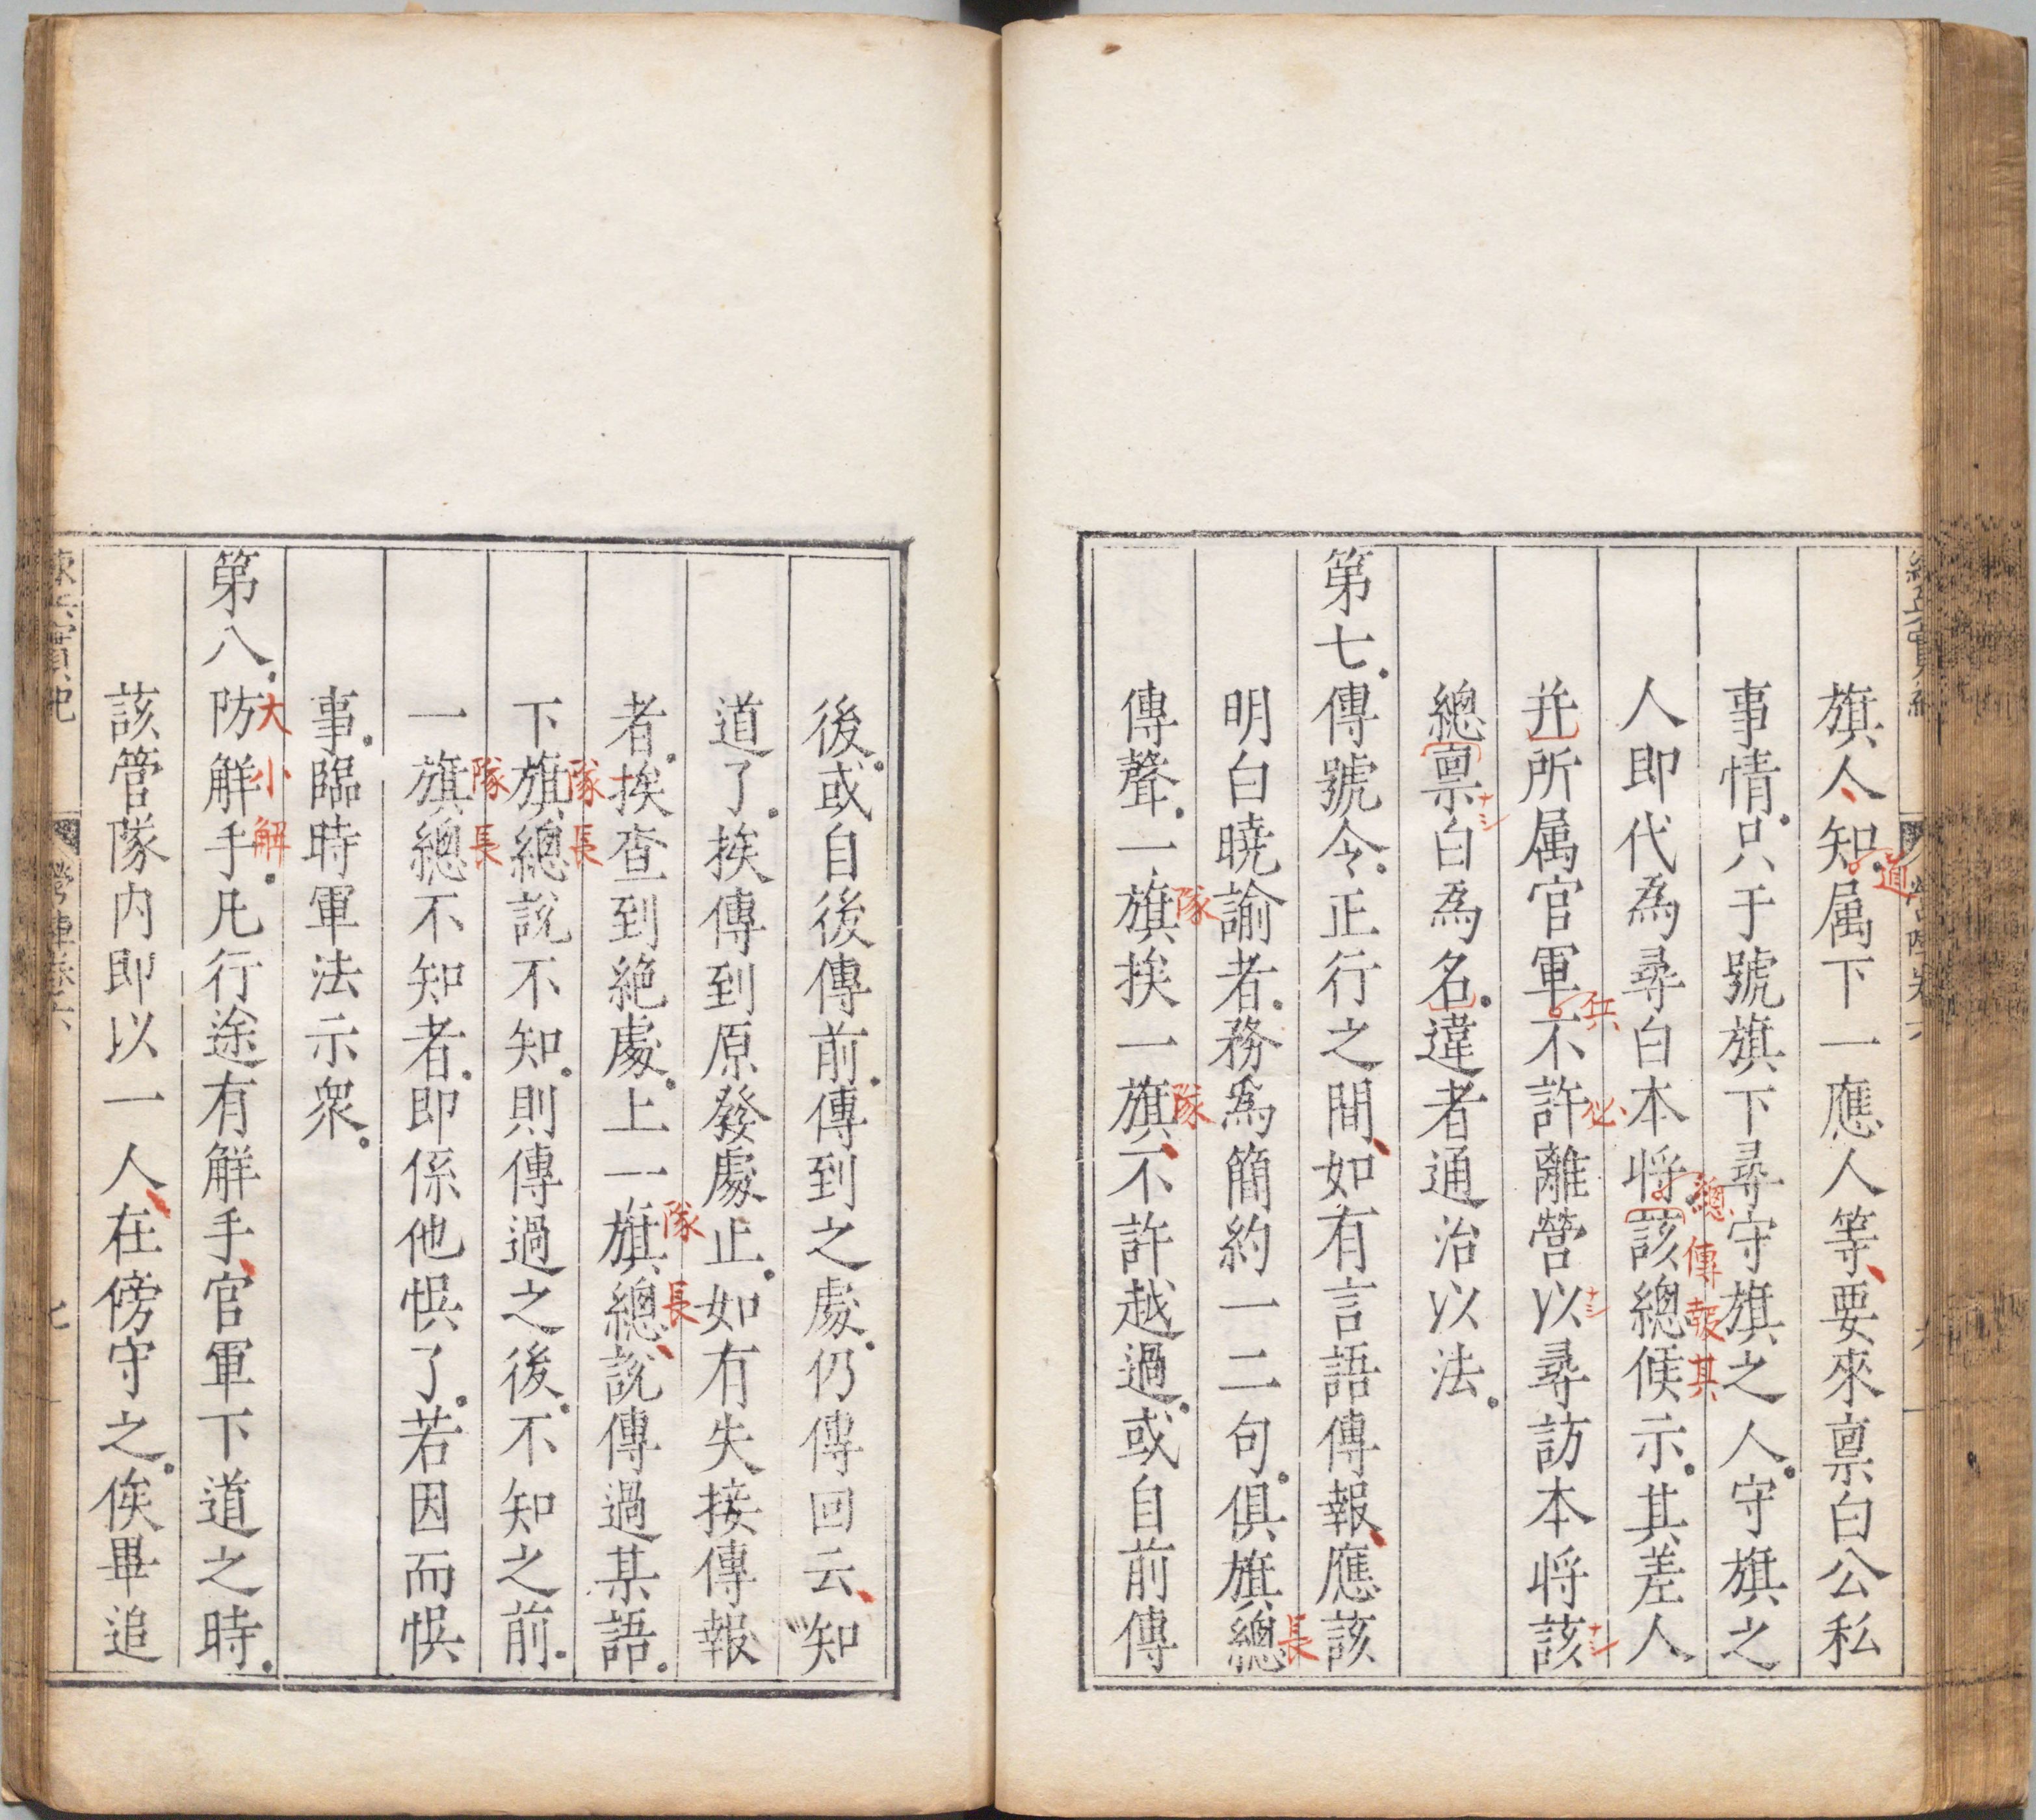 旗人知属下一應人等要來禀白公私
道
事情只于號旗下尋守旗之人守旗之
人即代為尋白本將該總候示其差人
總傳報其
并所属官軍不許離營以尋訪本將該
兵必ナシナシ
總禀白為名違者通治以法
ナシ
第七傳號令正行之間如有言語傳報應該
明白曉諭者務爲簡約一二句俱旗總
長
傳聲一旗挨一旗不許越過或自前傳
隊隊
後或自後傳前傳到之處仍傳回云知
道了挨傳到原發處止如有失接傳報
者挨查到絕處上一旗總說傳過某語
隊長
下旗總說不知則傳過之後不知之前
隊長
一旗總不知者即係他悞了若因而悞
隊長
事臨時軍法示衆
第八防解手凡行途有解手官軍下道之時
大小解
該管隊内即以一人在傍守之俟畢追